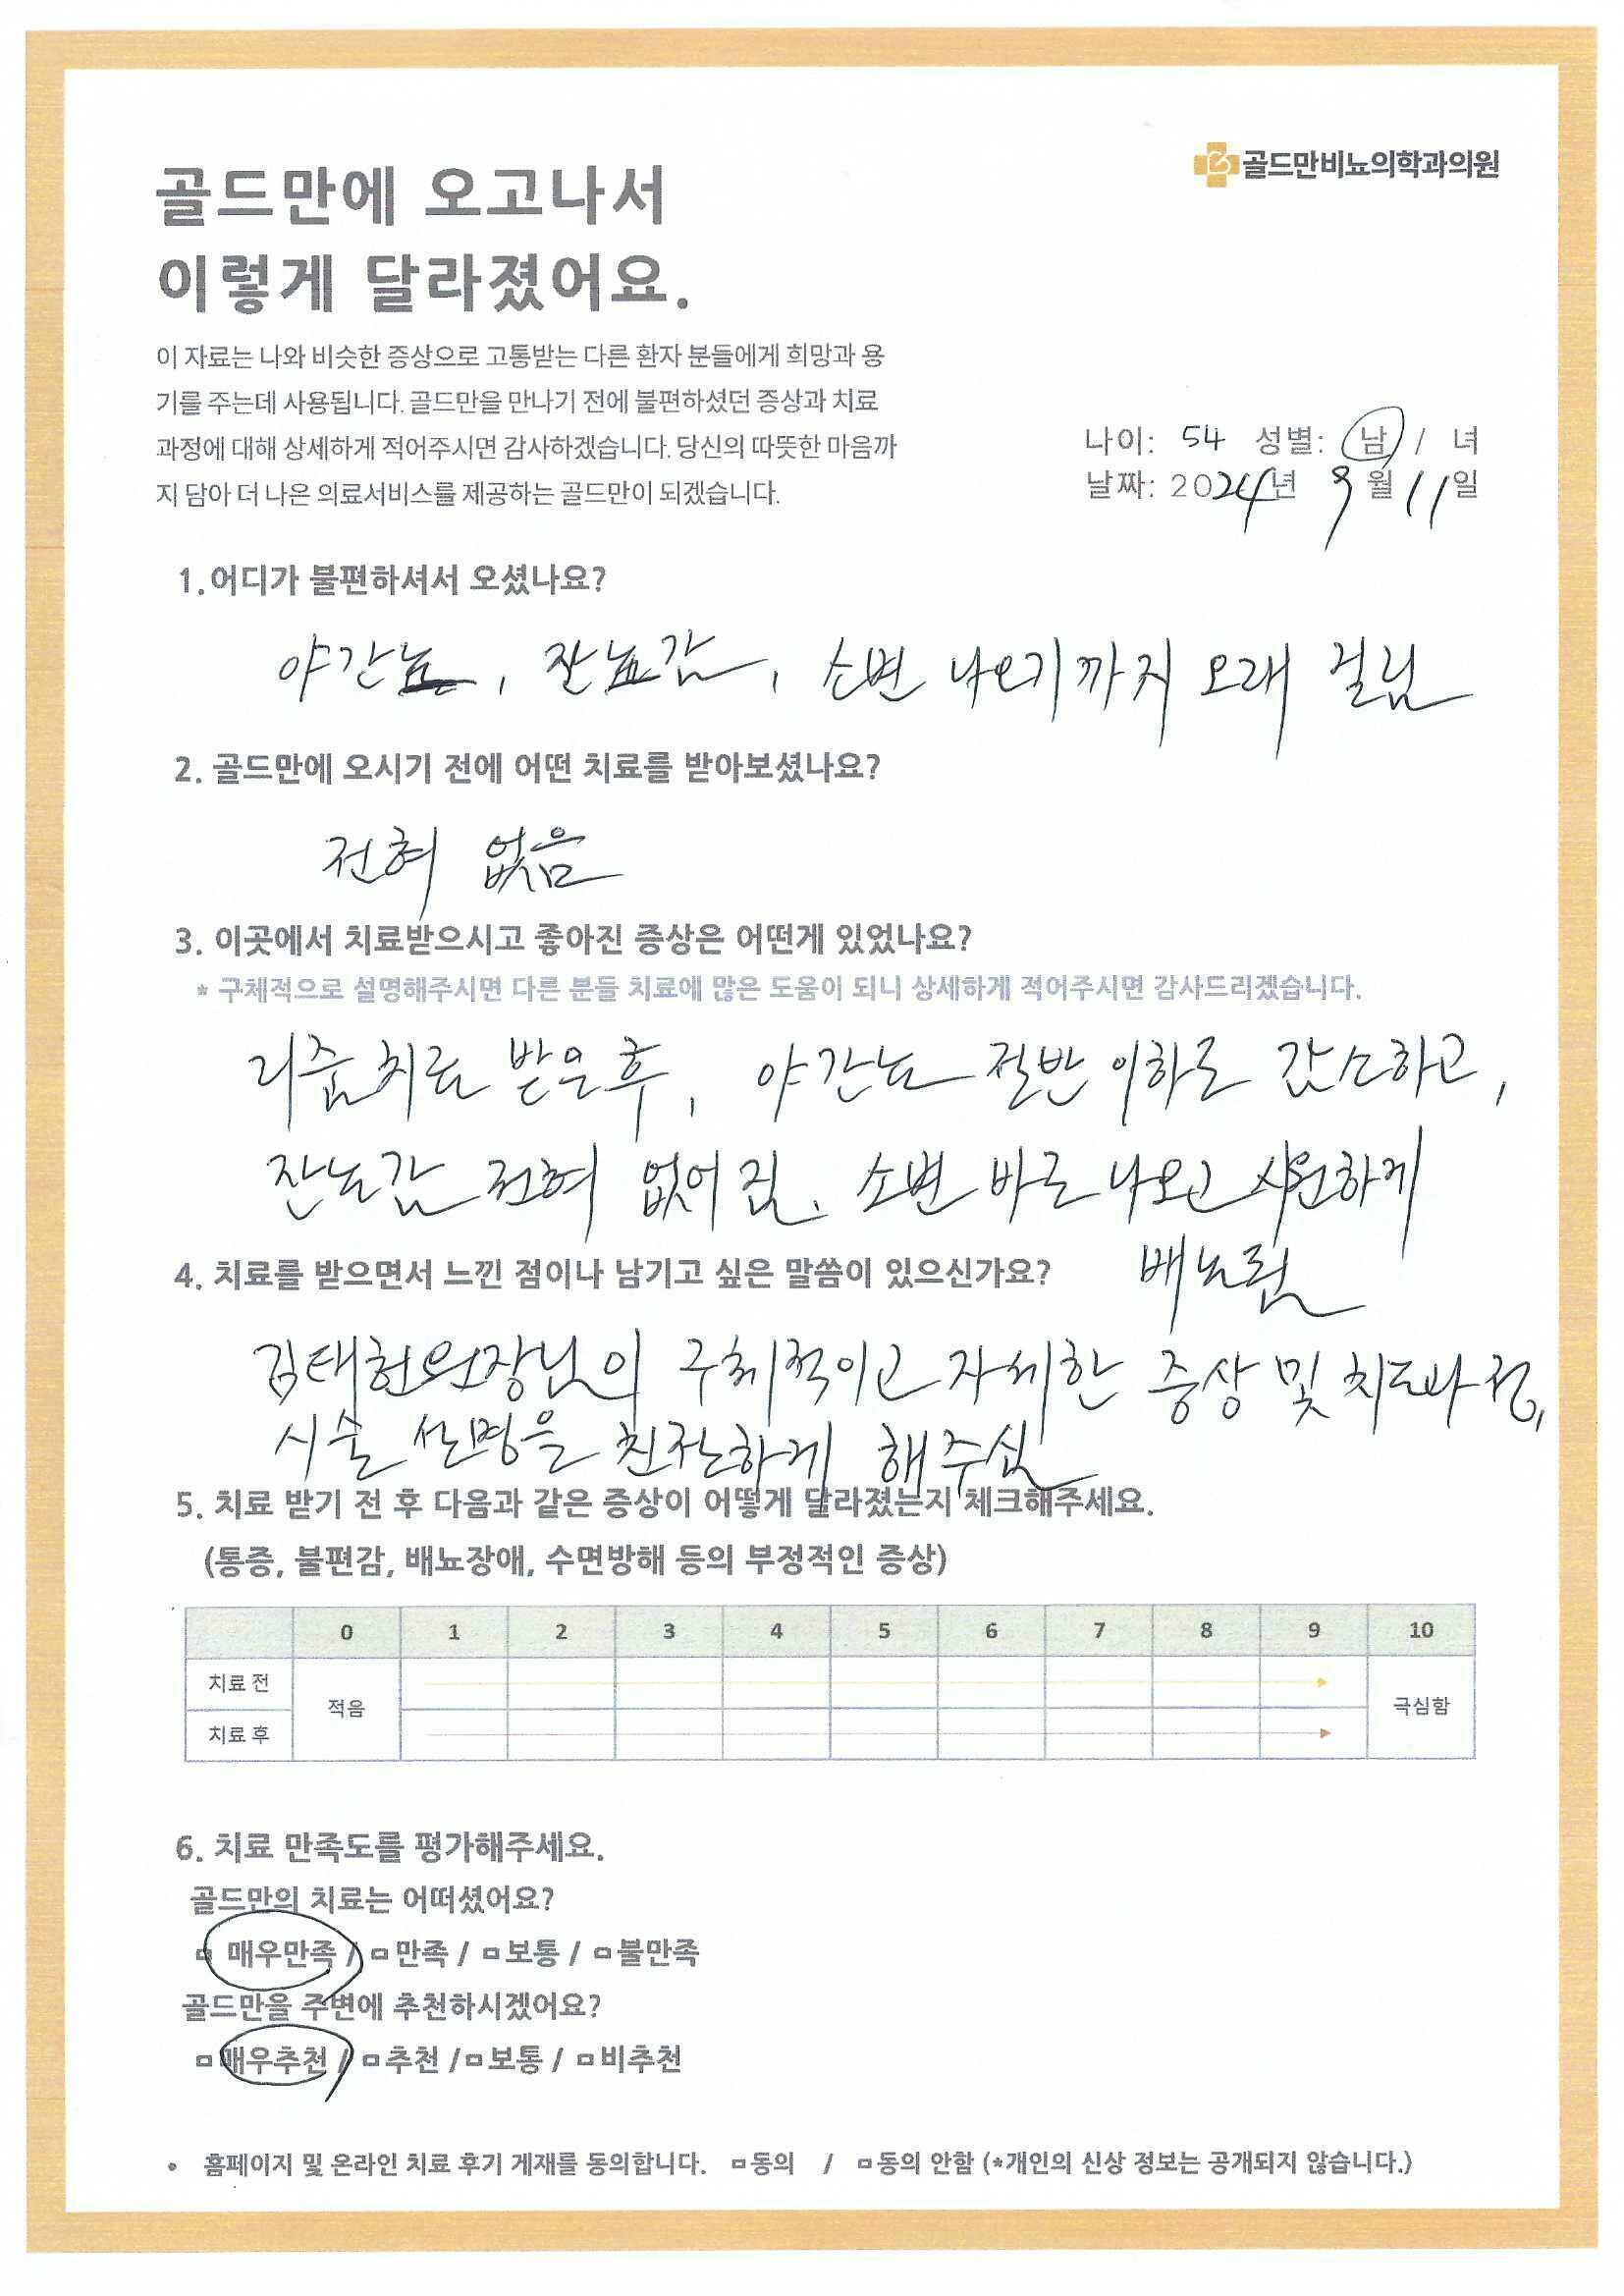 골드만비뇨의학과의원
골드만에 오고나서
이렇게 달라졌어요.
이 자료는 나와 비슷한 증상으로 고통받는 다른 환자 분들에게 희망과 용
기를 주는데 사용됩니다. 골드만을 만나기 전에 불편하셨던 증상과 치료
과정에 대해 상세하게 적어주시면 감사하겠습니다. 당신의 따뜻한 마음까
지 담아 더 나은 의료서비스를 제공하는 골드만이 되겠습니다.
나이: 54 성별: 남 / 녀
날짜: 2024년 9월 11일
1.어디가 불편하셔서 오셨나요?
야간뇨, 잔뇨감, 소변 나오기까지 오래 걸림
2. 골드만에 오시기 전에 어떤 치료를 받아보셨나요?
전혀 없음
3. 이곳에서 치료받으시고 좋아진 증상은 어떤게 있었나요?
* 구체적으로 설명해주시면 다른 분들 치료에 많은 도움이 되니 상세하게 적어주시면 감사드리겠습니다.
리줌치료 받은후, 야간뇨 절반 이하로 감소하고,
잔뇨감 전혀 없어짐. 소변 바로 나오고 시원하게
배뇨됨
4. 치료를 받으면서 느낀 점이나 남기고 싶은 말씀이 있으신가요?
김태헌원장님의 구체적이고 자세한 증상 및 치료과정,
시술 설명을 친절하게 해주심
5. 치료 받기 전 후 다음과 같은 증상이 어떻게 달라졌는지 체크해주세요.
(통증, 불편감, 배뇨장애, 수면방해 등의 부정적인 증상)
0 1 2 3 4 5 6 7 8 9 10
치료 전
적음 극심함
치료 후
6. 치료 만족도를 평가해주세요.
골드만의 치료는 어떠셨어요?
□ 매우만족 / □ 만족 / □ 보통 / □ 불만족
골드만을 주변에 추천하시겠어요?
□ 매우추천 / □ 추천 / □ 보통 / □ 비추천
• 홈페이지 및 온라인 치료 후기 게재를 동의합니다. □ 동의 / □ 동의 안함 (*개인의 신상 정보는 공개되지 않습니다.)